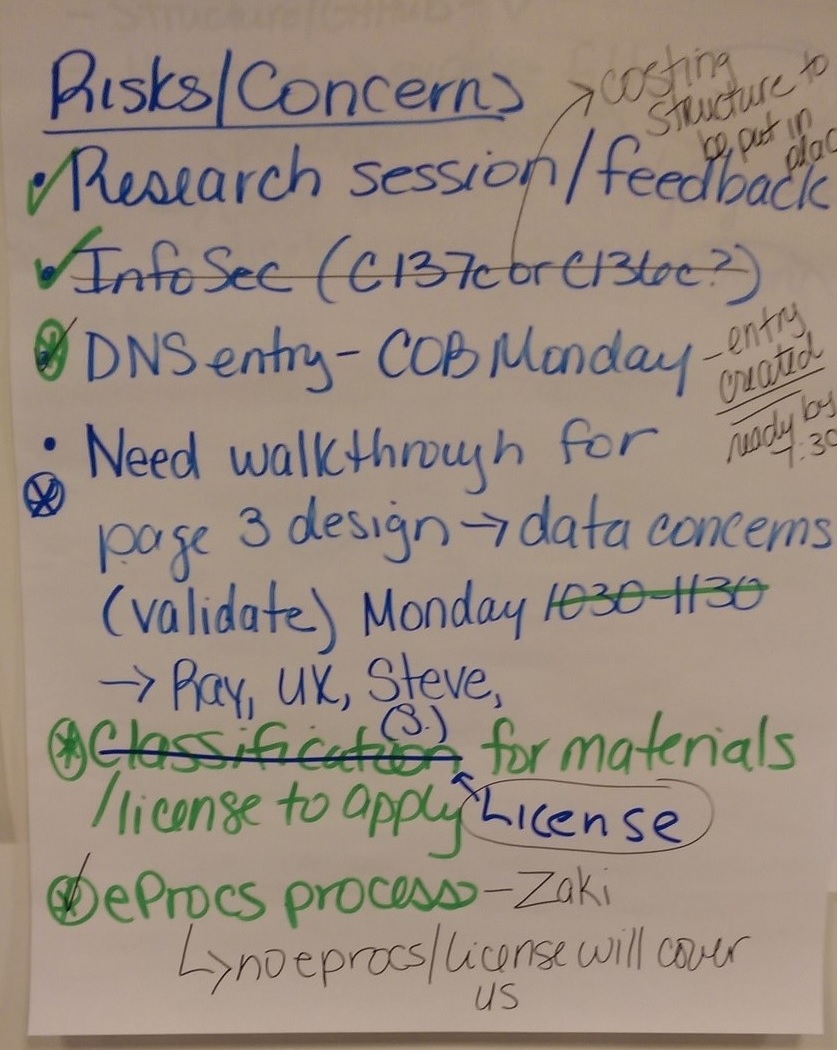 Risks/Concerns
costing
structure to
be put in
plac
Research session/feedback
InfoSec (C137c or C136c?)
DNS entry - COB Monday
- entry
created
ready by
7:30
Need walkthrough for
page 3 design → data concerns
(validate) Monday 1030-1130
→ Ray, UX, Steve,
(S.)
Classification for materials
/license to apply License
eProcs process - Zaki
↳ no eprocs/license will cover
us